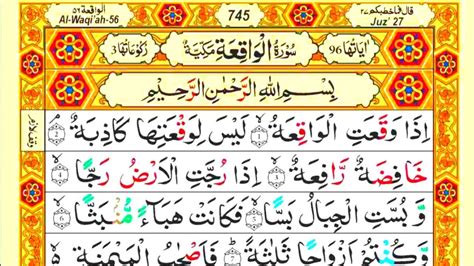 الواقعة ٥٦
Al-Waqi'ah-56
745
قال فما خطبكم ٢٧
Juz' 27
اٰیَاتُهَا 96
سُوْرَةُ الْوَاقِعَةِ مَكِّيَّةٌ
رُكُوْعَاتُهَا 3
بِسْمِ اللّٰهِ الرَّحْمٰنِ الرَّحِيْمِ
اِذَا وَقَعَتِ الْوَاقِعَةُ ۝١ لَيْسَ لِوَقْعَتِهَا كَاذِبَةٌ ۝٢
خَافِضَةٌ رَّافِعَةٌ ۝٣ اِذَا رُجَّتِ الْاَرْضُ رَجًّا ۝٤
وَّ بُسَّتِ الْجِبَالُ بَسًّا ۝٥ فَكَانَتْ هَبَآءً مُّنْۢبَثًّا ۝٦
وَّ كُنْتُمْ اَزْوَاجًا ثَلٰثَةً ۝٧ فَاَصْحٰبُ الْمَيْمَنَةِ